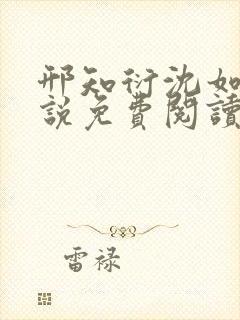 邢知衍沈如
説免費閱讀
雷禄